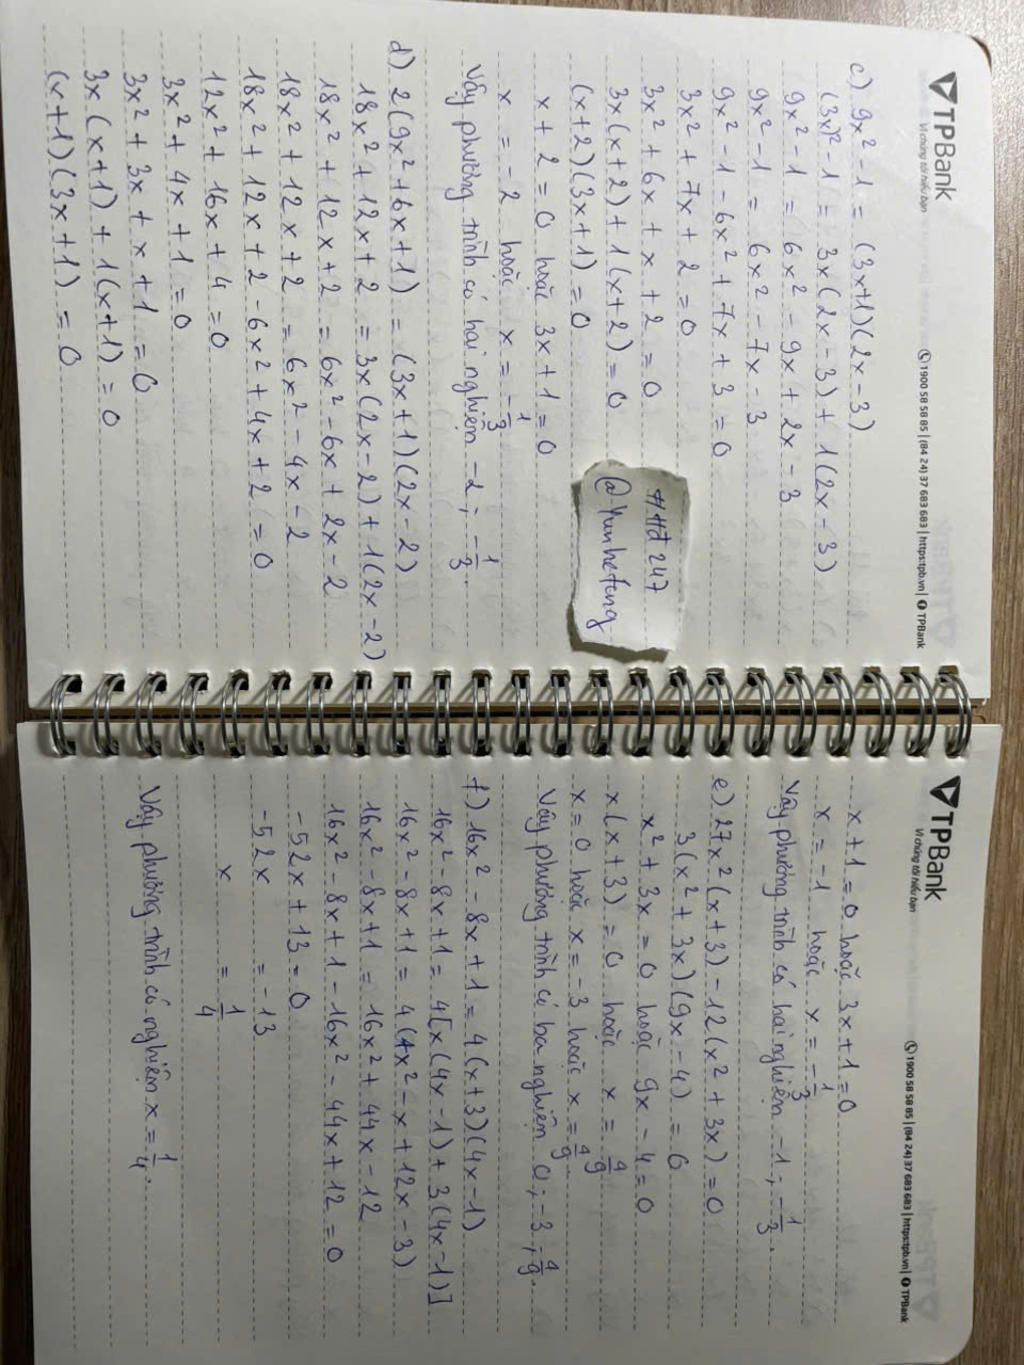 TPBank
Vì chúng tôi hiểu bạn
1900 58 58 85 | (84 24) 37 683 683 | https:tpb.vn | TPBank
c) 9x² - 1 = (3x+1)(2x-3)
(3x)² - 1 = 3x(2x-3) + 1(2x-3)
9x² - 1 = 6x² - 9x + 2x - 3
9x² - 1 = 6x² - 7x - 3
9x² - 1 - 6x² + 7x + 3 = 0
3x² + 7x + 2 = 0
3x² + 6x + x + 2 = 0
3x(x+2) + 1(x+2) = 0
(x+2)(3x+1) = 0
x + 2 = 0 hoặc 3x + 1 = 0
x = -2 hoặc x = -1/3
Vậy phương trình có hai nghiệm -2; -1/3.
d) 2(9x² + 6x + 1) = (3x+1)(2x-2)
18x² + 12x + 2 = 3x(2x-2) + 1(2x-2)
18x² + 12x + 2 = 6x² - 6x + 2x - 2
18x² + 12x + 2 = 6x² - 4x - 2
18x² + 12x + 2 - 6x² + 4x + 2 = 0
12x² + 16x + 4 = 0
3x² + 4x + 1 = 0
3x² + 3x + x + 1 = 0
3x(x+1) + 1(x+1) = 0
(x+1)(3x+1) = 0
#Hđ247
@Yunhetong
TPBank
Vì chúng tôi hiểu bạn
1900 58 58 85 | (84 24) 37 683 683 | https:tpb.vn | TPBank
x + 1 = 0 hoặc 3x + 1 = 0
x = -1 hoặc x = -1/3
Vậy phương trình có hai nghiệm -1; -1/3.
e) 27x²(x+3) - 12(x² + 3x) = 0
3(x² + 3x)(9x - 4) = 0
x² + 3x = 0 hoặc 9x - 4 = 0
x(x+3) = 0 hoặc x = 4/9
x = 0 hoặc x = -3 hoặc x = 4/9
Vậy phương trình có ba nghiệm 0; -3; 4/9.
f) 16x² - 8x + 1 = 4(x+3)(4x-1)
16x² - 8x + 1 = 4[x(4x-1) + 3(4x-1)]
16x² - 8x + 1 = 4(4x² - x + 12x - 3)
16x² - 8x + 1 = 16x² + 44x - 12
16x² - 8x + 1 - 16x² - 44x + 12 = 0
-52x + 13 = 0
-52x = -13
x = 1/4
Vậy phương trình có nghiệm x = 1/4.